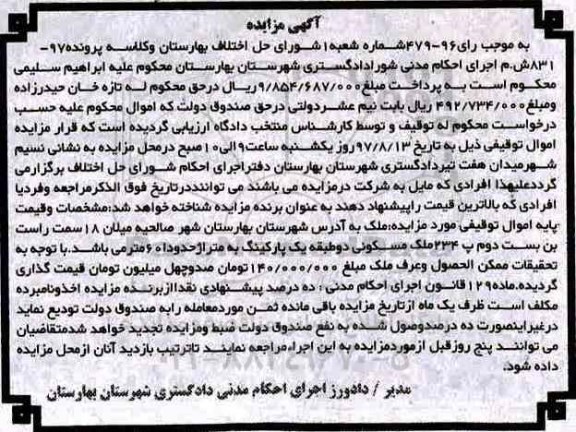 آگهی مزایده
به موجب رای۹۶-۴۷۹شماره شعبه۱شورای حل اختلاف بهارستان وکلاسه پرونده۹۷-
۸۳۱ش.م اجرای احکام مدنی شورادادگستری شهرستان بهارستان محکوم علیه ابراهیم سلیمی
محکوم است به پرداخت مبلغ۹/۸۵۴/۶۸۷/۰۰۰ریال درحق محکوم له تازه خان حیدرزاده
ومبلغ۴۹۲/۷۳۴/۰۰۰ ریال بابت نیم عشردولتی درحق صندوق دولت که اموال محکوم علیه حسب
درخواست محکوم له توقیف و توسط کارشناس منتخب دادگاه ارزیابی گردیده است که قرار مزایده
اموال توقیفی ذیل به تاریخ ۹۷/۸/۱۳روز یکشنبه ساعت۹الی۱۰صبح درمحل مزایده به نشانی نسیم
شهرمیدان هفت تیردادگستری شهرستان بهارستان دفتراجرای احکام شورای حل اختلاف برگزارمی
گرددعلیهذا افرادی که مایل به شرکت درمزایده می باشند می تواننددرتاریخ فوق الذکرمراجعه وفردیا
افرادی که بالاترین قیمت راپیشنهاد دهند به عنوان برنده مزایده شناخته خواهد شد:مشخصات وقیمت
پایه اموال توقیفی مورد مزایده:ملک به آدرس شهرستان بهارستان شهر صالحیه میلان ۱۸سمت راست
بن بست دوم پ ۲۳۴ملک مسکونی دوطبقه یک پارکینگ به متراژحدودا۶۰مترمی باشد.با توجه به
تحقیقات ممکن الحصول وعرف ملک مبلغ ۱۴۰/۰۰۰/۰۰۰تومان صدوچهل میلیون تومان قیمت گذاری
گردیده.ماده۱۲۹قانون اجرای احکام مدنی : ده درصد پیشنهادی نقداازبرنده مزایده اخذونامبرده
مکلف است ظرف یک ماه ازتاریخ مزایده باقی مانده ثمن موردمعامله رابه صندوق دولت تودیع نماید
درغیراینصورت ده درصدوصول شده به نفع صندوق دولت ضبط ومزایده تجدید خواهد شدمتقاضیان
می توانند پنج روزقبل ازموردمزایده به این اجرا،مراجعه نمایند تاترتیب بازدید آنان ازمحل مزایده
داده شود.
مدیر / دادورز اجرای احکام مدنی دادگستری شهرستان بهارستان